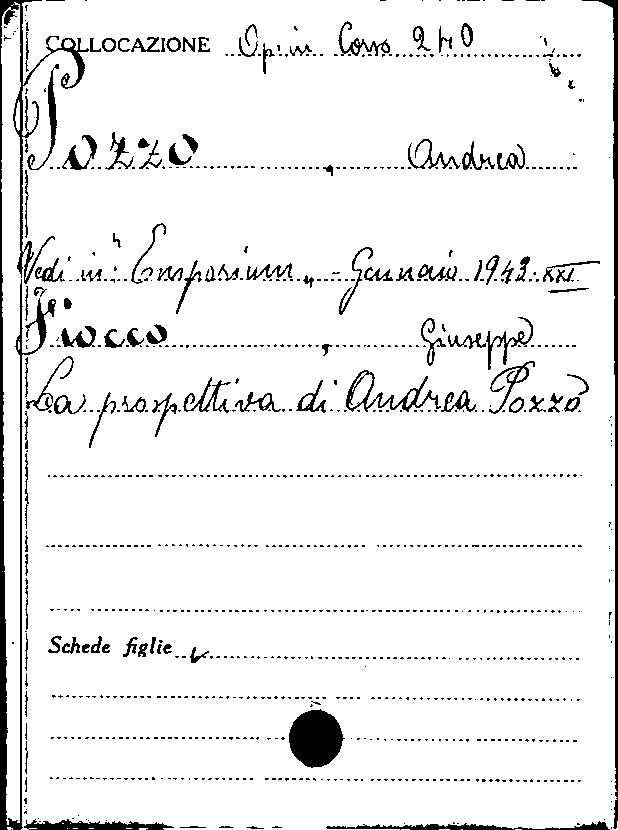 COLLOCAZIONE Op. in Corso 240
Pozzo, Andrea
Vedi in: "Emporium" - Gennaio 1943-XXI
Fiocco, Giuseppe
La prospettiva di Andrea Pozzo
Schede figlie